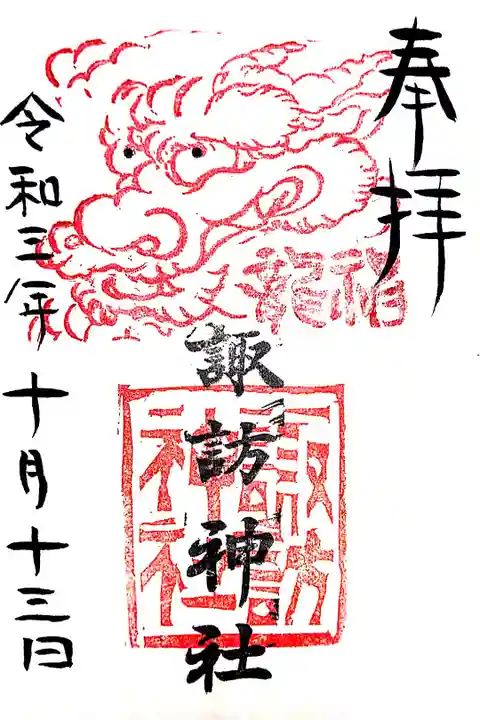 奉拝
諏訪神社
諏訪
神社
令和三年十月十三日